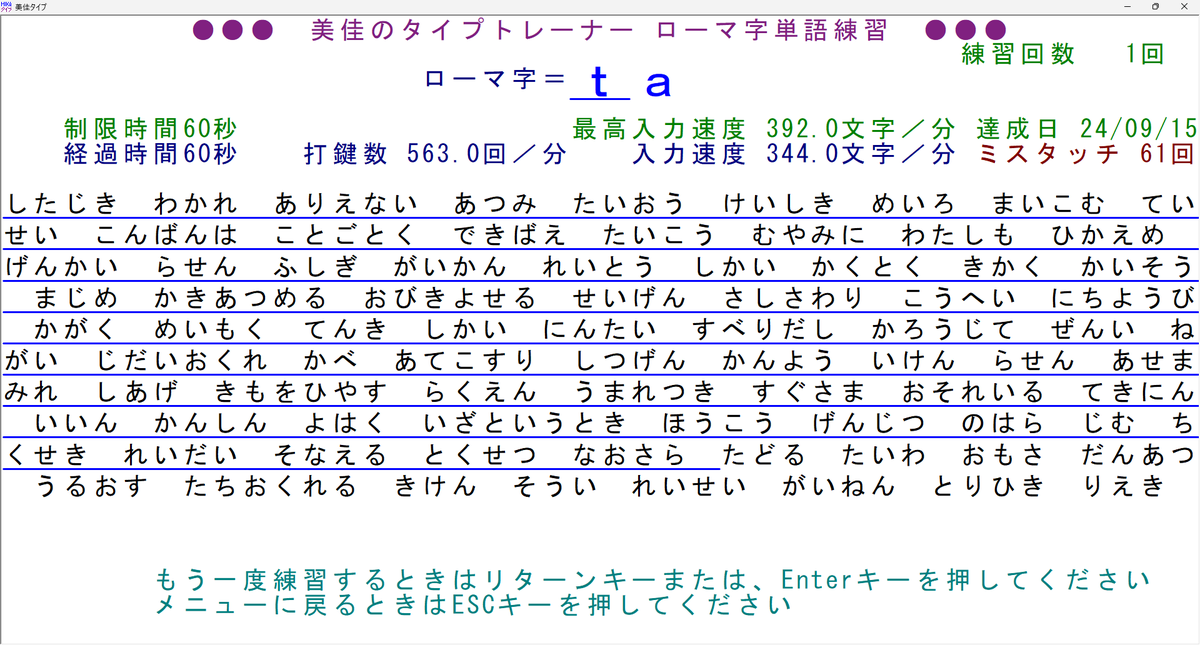 美佳タイプ
●●● 美佳のタイプトレーナー ローマ字単語練習 ●●●
練習回数 1回
ローマ字＝ t a
制限時間60秒 最高入力速度 392.0文字／分 達成日 24/09/15
経過時間60秒 打鍵数 563.0回／分 入力速度 344.0文字／分 ミスタッチ 61回
したじき わかれ ありえない あつみ たいおう けいしき めいろ まいこむ てい
せい こんばんは ことごとく できばえ たいこう むやみに わたしも ひかえめ
げんかい らせん ふしぎ がいかん れいとう しかい かくとく きかく かいそう
まじめ かきあつめる おびきよせる せいげん さしさわり こうへい にちようび
かがく めいもく てんき しかい にんたい すべりだし かろうじて ぜんい ね
がい じだいおくれ かべ あてこすり しつげん かんよう いけん らせん あせま
みれ しあげ きもをひやす らくえん うまれつき すぐさま おそれいる てきにん
いいん かんしん よはく いざというとき ほうこう げんじつ のはら じむ ち
くせき れいだい そなえる とくせつ なおさら たどる たいわ おもさ だんあつ
うるおす たちおくれる きけん そうい れいせい がいねん とりひき りえき
もう一度練習するときはリターンキーまたは、Enterキーを押してください
メニューに戻るときはESCキーを押してください